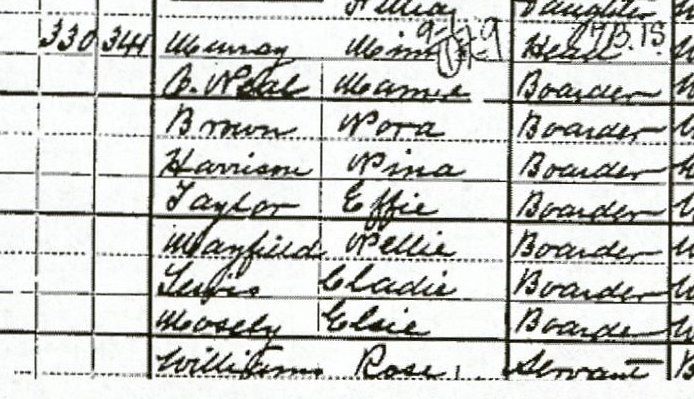 Daughter
330 341 Murray Head
O. Neal Mamie Boarder
Brown Nora Boarder
Harrison Nina Boarder
Taylor Effie Boarder
Mayfield Nellie Boarder
Lewis Cladie Boarder
Mosely Elsie Boarder
Williams Rose Servant